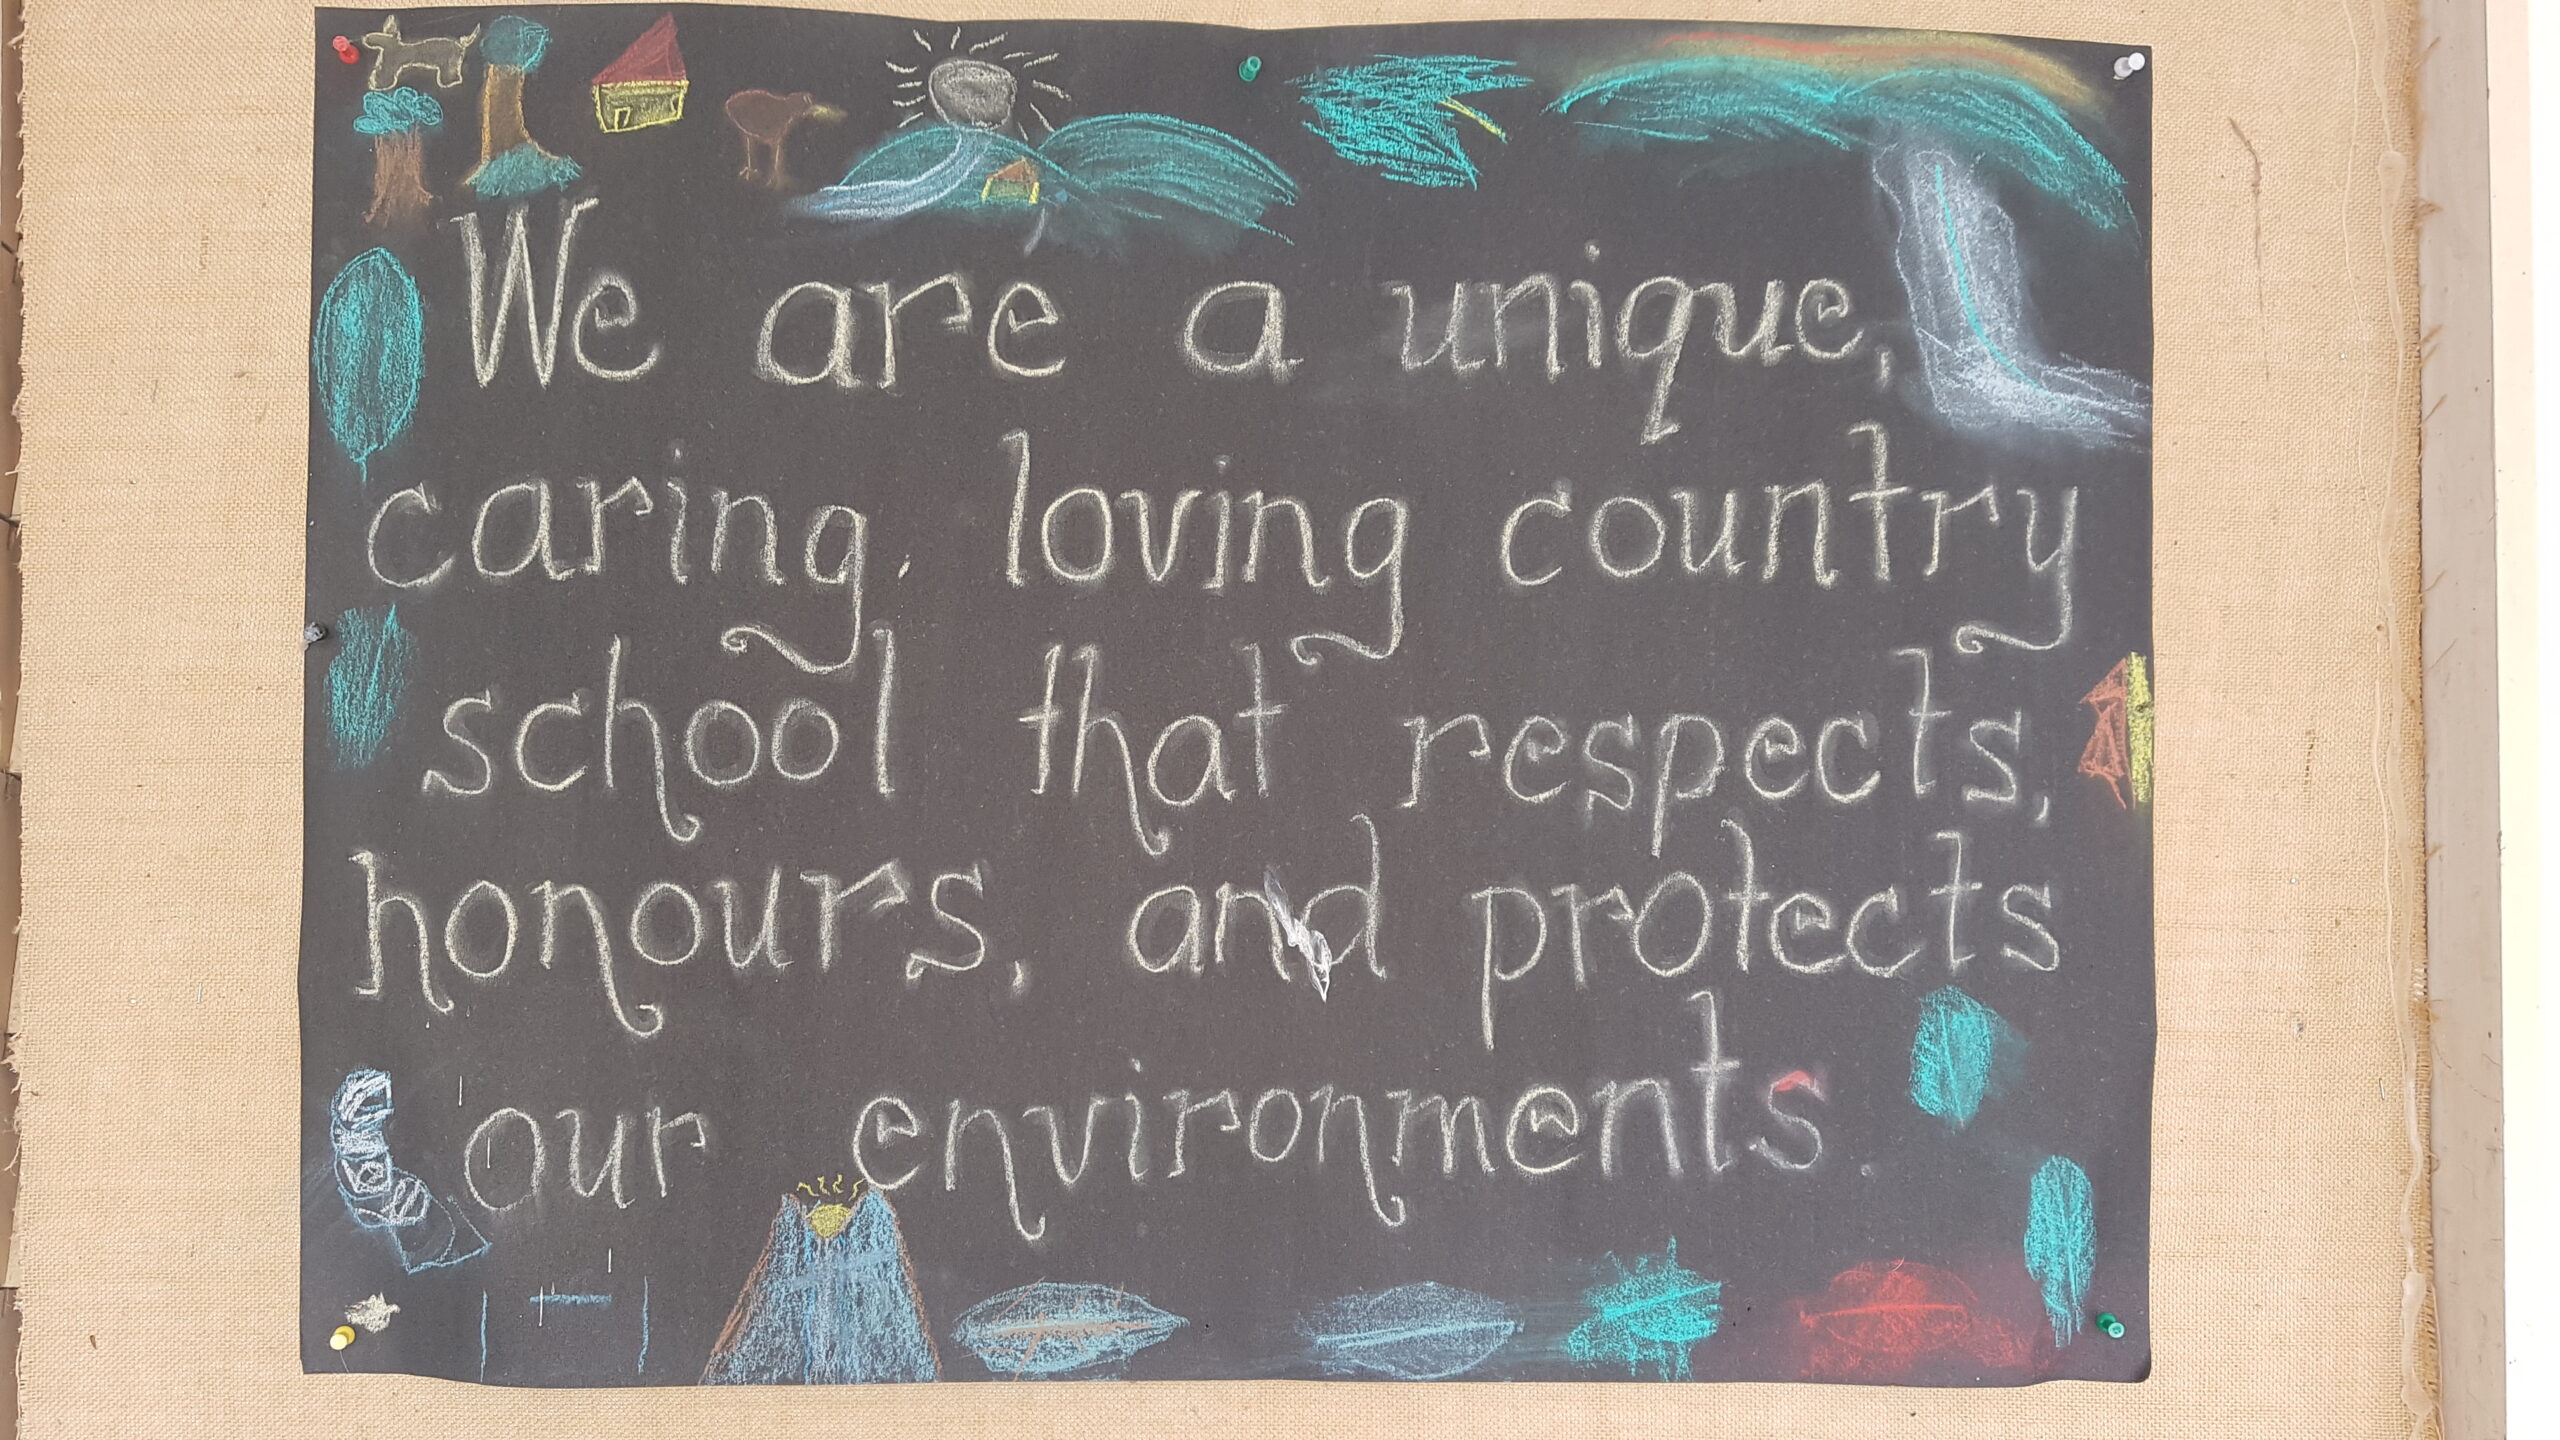 We are a unique,
caring, loving country
school that respects,
honours, and protects
our environments.